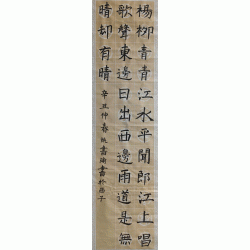 楊柳青青江水平聞郎江上唱
歌聲東邊日出西邊雨道是無
晴却有晴 辛丑仲春